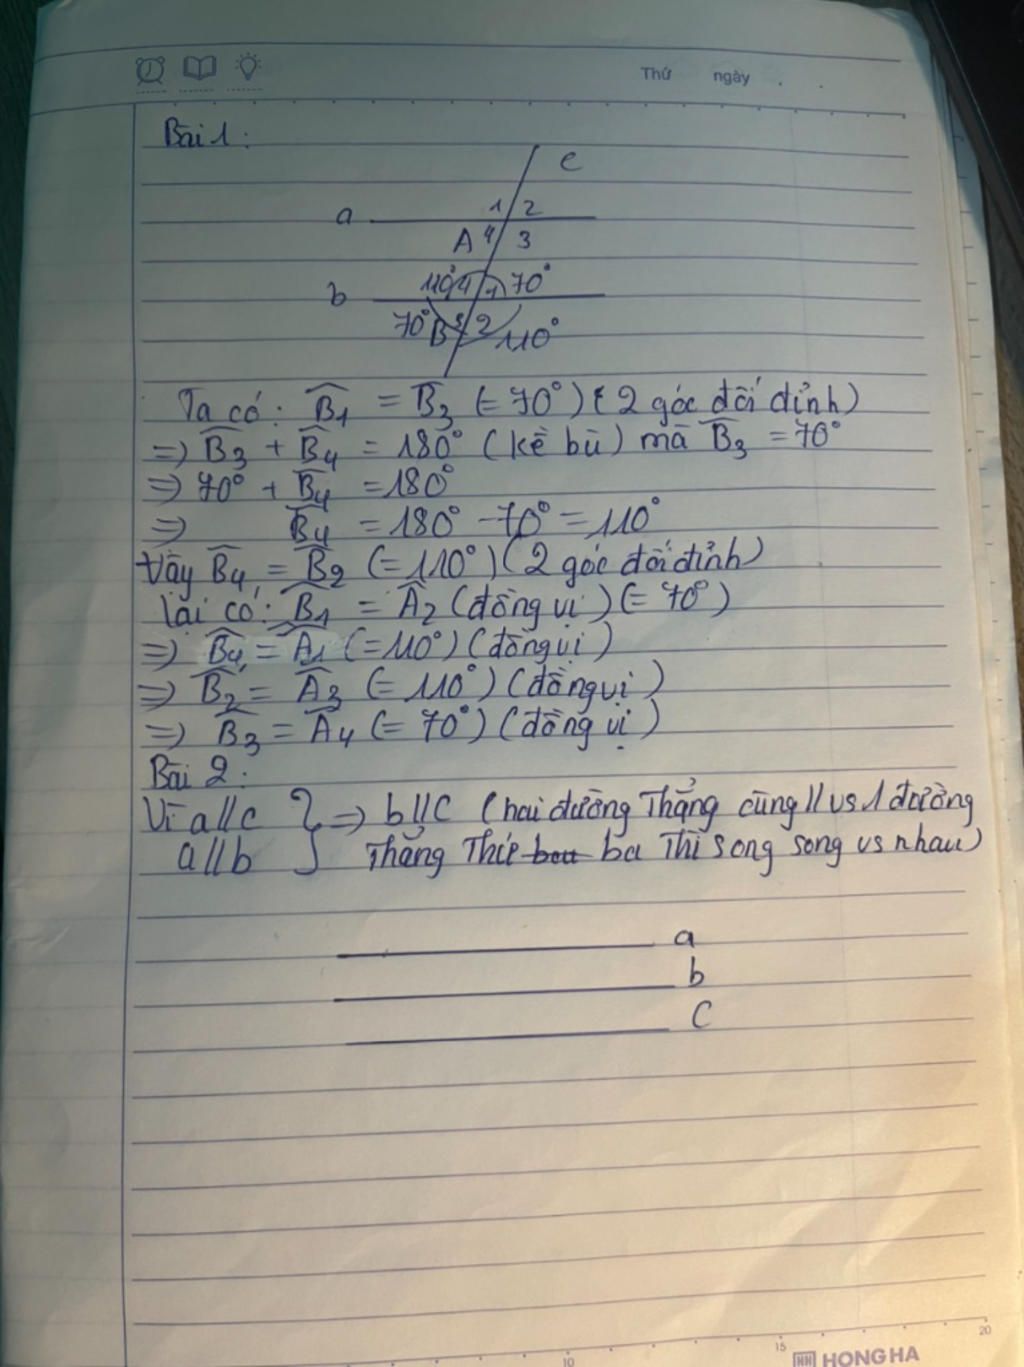 Thứ ngày
Bài 1:
c
a 1 2
A 4 3
b 110° 4 1 70°
70° B 3 2 110°
Ta có: B̂1 = B̂3 (= 70°) (2 góc đối đỉnh)
=> B̂3 + B̂4 = 180° (kề bù) mà B̂3 = 70°
=> 70° + B̂4 = 180°
=> B̂4 = 180° - 70° = 110°
Vậy B̂4 = B̂2 (= 110°) (2 góc đối đỉnh)
lại có: B̂1 = Â2 (đồng vị) (= 70°)
=> B̂4 = Â1 (= 110°) (đồng vị)
=> B̂2 = Â3 (= 110°) (đồng vị)
=> B̂3 = Â4 (= 70°) (đồng vị)
Bài 2:
Vì a//c } => b//c (hai đường thẳng cùng // vs 1 đường
a//b thẳng thứ ba thì song song vs nhau)
a
b
c
10 15 20
HH HONG HA